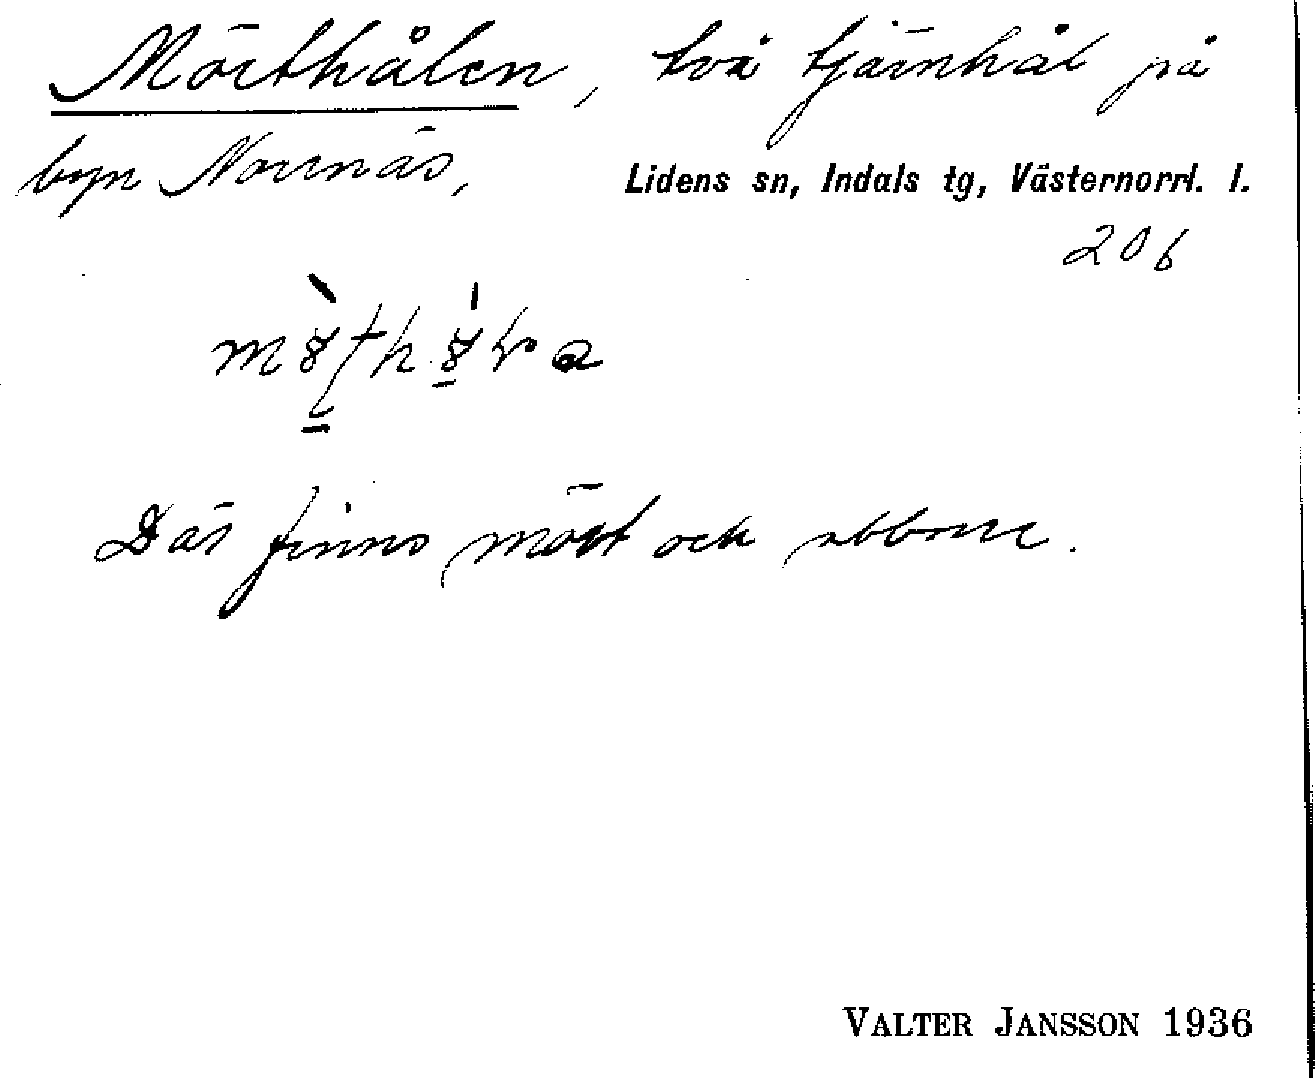 Mörthålen, två tjärnhål på
byn Norrnäs,
Lidens sn, Indals tg, Västernorrl. l.
206
Där finns mört och abborre.
VALTER JANSSON 1936